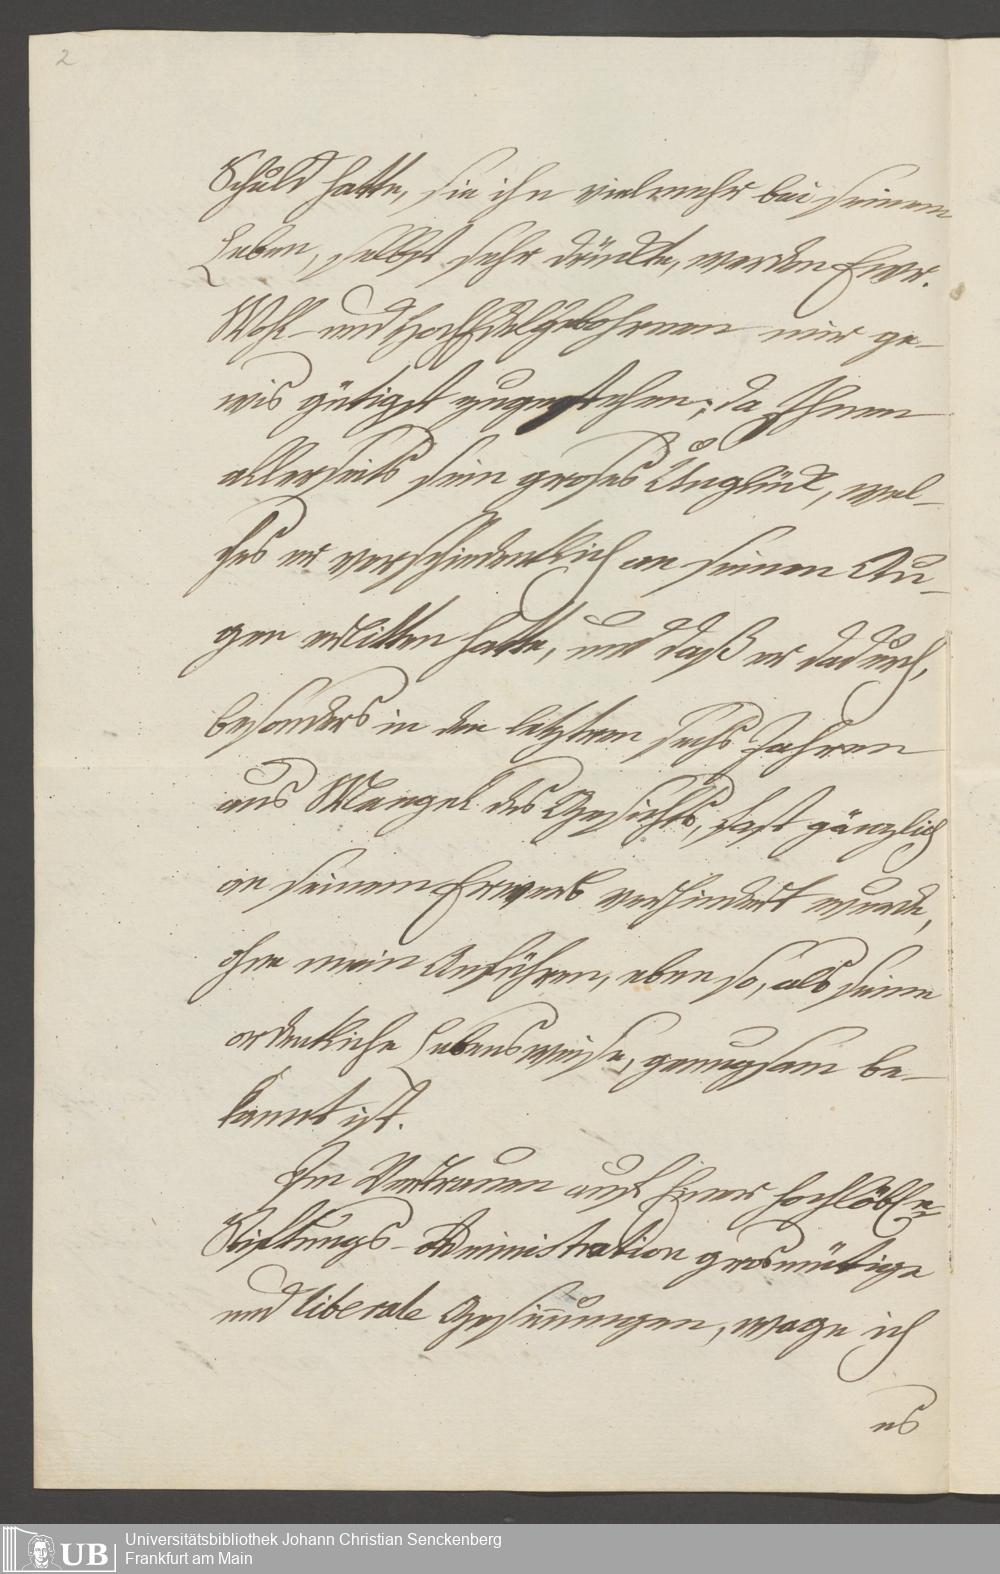 2
Schuld hatte, sie ihn vielmehr bei seinem
Leben, selbst sehr drückte, werden Ewr.
Wohl- und HochEdelgebohrnen mir ge-
wis gütigst zugestehen; da Ihnen
allerseits sein groses Unglück, wel-
ches er verschiedentlich an seinen Au-
gen erlitten hatte, und daß er dadurch,
besonders in den letztern sechs Jahren
aus Mangel des Gesichts, fast gänzlich
an seinem Erwerb verhindert wurde,
ohne mein Anführen, eben so, als seine
ordentliche Lebensweise, genugsam be-
kannt ist.
Im Vertrauen auf Einer hochlöbl.
Stiftungs-Administration grosmütige
und liberale Gesinnungen, wage ich
es
UB
Universitätsbibliothek Johann Christian Senckenberg
Frankfurt am Main